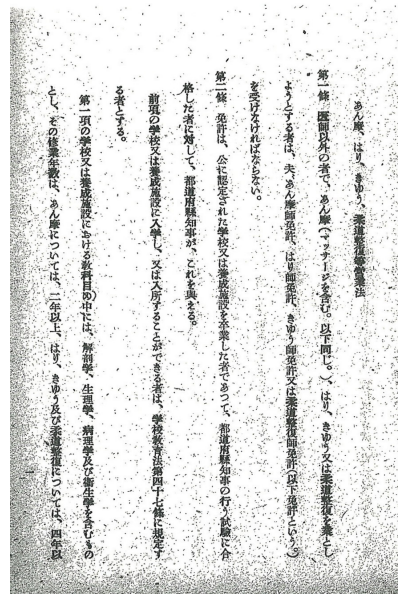 あん摩、はり、きゆう、柔道整復等営業法
第一條　医師以外の者で、あん摩(マッサージを含む。以下同じ。)、はり、きゆう又は柔道整復を業とし
ようとする者は、夫々あん摩師免許、はり師免許、きゆう師免許又は柔道整復師免許(以下免許という。)
を受けなければならない。
第二條　免許は、公に認定された学校又は養成施設を卒業した者であつて、都道府縣知事の行う試驗に合
格した者に対して、都道府縣知事が、これを與える。
前項の学校又は養成施設に入学し、又は入所することができる者は、学校教育法第四十七條に規定す
る者とする。
第一項の学校又は養成施設における教科目の中には、解剖学、生理学、病理学及び衞生学を含むもの
とし、その修業年数は、あん摩については、二年以上、はり、きゆう及び柔道整復については、四年以
一